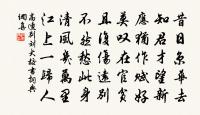 昔日京華去
知君才望新
應猶作賦好
莫歎在官貧
且復傷遠別
不然愁此身
清風幾萬里
江上一歸人
高適別劉大校書詞典
網